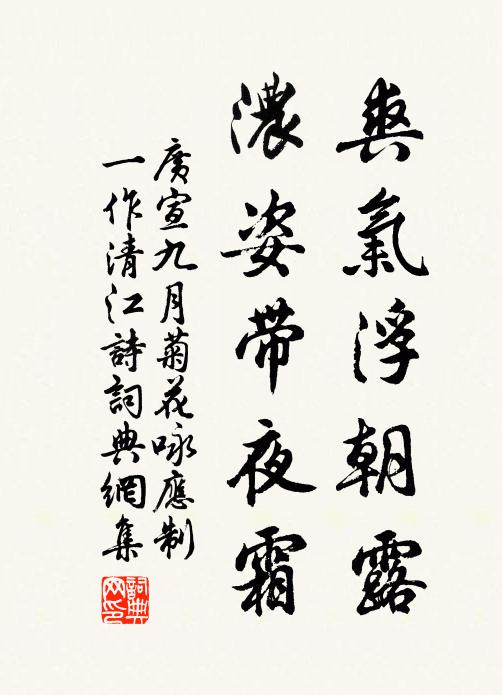 爽氣浮朝露
濃姿帶夜霜
廣宣九月菊花咏應制
一作清江詩詞典網集
詞典
网印